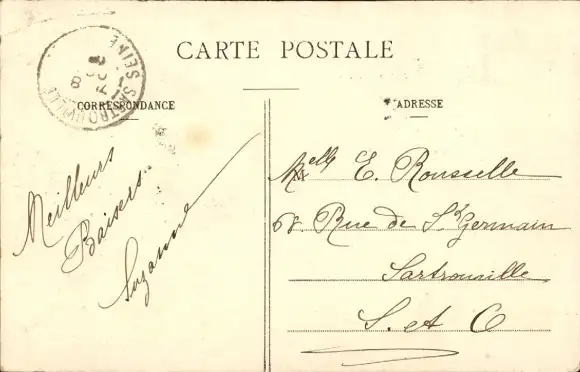 CARTE POSTALE
CORRESPONDANCE
ADRESSE
Meilleurs
Baisers
Suzanne
Melle E. Rousselle
68. Rue de St Germain
Sartrouville
S. et O
SARTROUVILLE
SEINE